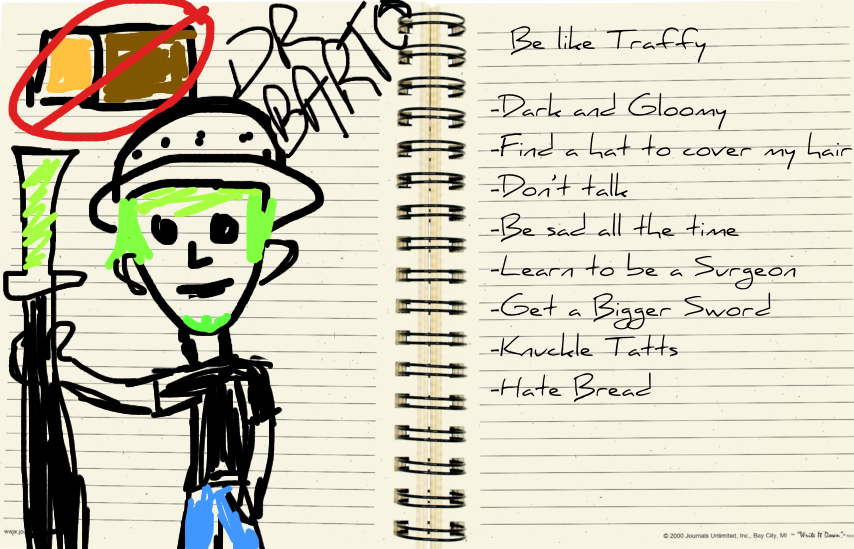 DR
BARTO
Be like Traffy
-Dark and Gloomy
-Find a hat to cover my hair
-Don't talk
-Be sad all the time
-Learn to be a Surgeon
-Get a Bigger Sword
-Knuckle Tatts
-Hate Bread
www.jo
© 2000 Journals Unlimited, Inc., Bay City, MI ~ "Write It Down"